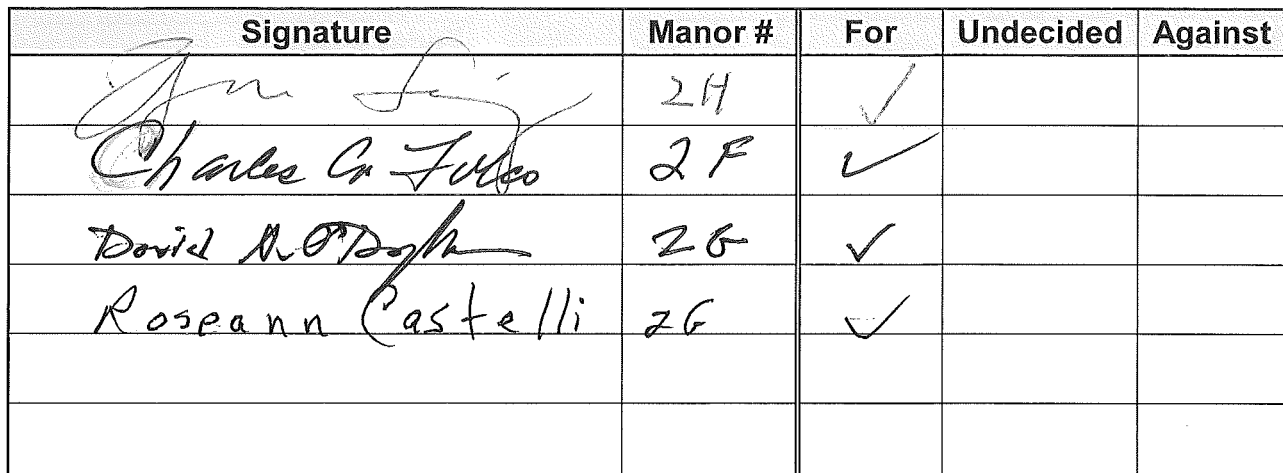 Signature Manor # For Undecided Against
2H ✓
Charles 2F ✓
David 2G ✓
Roseann Castelli 2G ✓